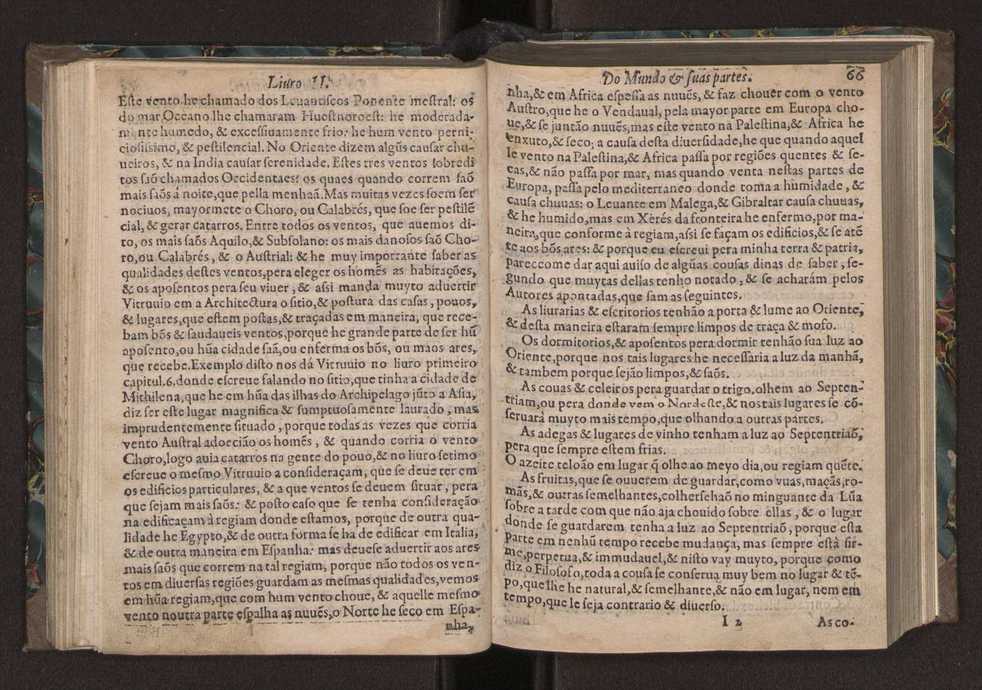 Liuro II.
Este vento he chamado dos Leuantiscos Ponente mestral: os
do mar Oceano lhe chamaram Huestnoroest: he moderada-
mente humedo, & excessiuamente frio: he hum vento perni-
ciosissimo, & pestilencial. No Oriente dizem algũs causar chu-
ueiros, & na India causar serenidade. Estes tres ventos sobredi
tos saõ chamados Occidentaes: os quaes quando correm saõ
mais saõs á noite, que pella menhaã. Mas muitas vezes soem ser
nociuos, mayormẽte o Choro, ou Calabrés, que soe ser pestilẽ
cial, & gerar catarros. Entre todos os ventos, que auemos di-
to, os mais saõs Aquilo, & Subsolano: os mais danosos saõ Cho-
ro, ou Calabrés, & o Austrial: & he muy importante saber as
qualidades destes ventos, pera eleger os homẽs as habitações,
& os aposentos pera seu viuer, & assi manda muyto aduertir
Vitruuio em a Architectura o sitio, & postura das casas, pouos,
& lugares, que estem postas, & traçadas em maneira, que rece-
bam bõs & saudaueis ventos, porque he grande parte de ser hũ
aposento, ou hũa cidade saã, ou enferma os bõs, ou maos ares,
que recebe. Exemplo disto nos dá Vitruuio no liuro primeiro
capitul. 6. donde escreue falando no sitio, que tinha a cidade de
Mithilena, que he em hũa das ilhas do Archipelago jũto a Asia,
diz ser este lugar magnifica & sumptuosamente laurado, mas
imprudentemente situado, porque todas as vezes que corria
vento Austral adoecião os homẽs, & quando corria o vento
Choro, logo auia catarros na gente do pouo, & no liuro setimo
escreue o mesmo Vitruuio a consideraçam, que se deue ter em
os edificios particulares, & a que ventos se deuem situar, pera
que sejam mais saõs: & posto caso que se tenha consideração
na edificaçam à regiam donde estamos, porque de outra qua-
lidade he Egypto, & de outra forma se ha de edificar em Italia,
& de outra maneira em Espanha: mas deuese aduertir aos ares
mais saõs que correm na tal regiam, porque não todos os ven-
tos em diuersas regiões guardam as mesmas qualidades, vemos
em hũa regiam, que com hum vento choue, & aquelle mesmo
vento noutra parte espalha as nuuẽs, o Norte he seco em Espa-
nha,
Do Mundo & suas partes. 66
nha, & em Africa espessa as nuuẽs, & faz chouer com o vento
Austro, que he o Vendaual, pela mayor parte em Europa cho-
ue, & se juntão nuuẽs, mas este vento na Palestina, & Africa he
enxuto, & seco; a causa desta diuersidade, he que quando aquel
le vento na Palestina, & Africa passa por regiões quentes & se-
cas, & não passa por mar, mas quando venta nestas partes de
Europa, passa pelo mediterraneo donde toma a humidade, &
causa chuuas: o Leuante em Malega, & Gibraltar causa chuuas,
& he humido, mas em Xerés da fronteira he enfermo, por ma-
neira, que conforme à regiam, assi se façam os edificios, & se atẽ
te aos bõs ares: & porque eu escreui pera minha terra & patria,
pareceome dar aqui auiso de algũas cousas dinas de saber, se-
gundo que muytas dellas tenho notado, & se acharám pelos
Autores apontadas, que sam as seguintes.
As liurarias & escritorios tenhão a porta & lume ao Oriente,
& desta maneira estaram sempre limpos de traça & mofo.
Os dormitorios, & aposentos pera dormir tenhão sua luz ao
Oriente, porque nos tais lugares he necessaria a luz da manhã,
& tambem porque sejão limpos, & saõs.
As couas & celeiros pera guardar o trigo, olhem ao Septen-
triam, ou pera donde vem o Nordeste, & nos tais lugares se cõ-
seruará muyto mais tempo, que olhando a outras partes.
As adegas & lugares de vinho tenham a luz ao Septentriaõ,
pera que sempre estem frias.
O azeite teloão em lugar q̃ olhe ao meyo dia, ou regiam quẽte.
As fruitas, que se ouuerem de guardar, como vuas, maçãs, ro-
mãs, & outras semelhantes, colhersehaõ no minguante da Lũa
sobre a tarde com que não aja chouido sobre ellas, & o lugar
donde se guardarem tenha a luz ao Septentriaõ, porque esta
parte em nenhũ tempo recebe mudança, mas sempre està fir-
me, perpetua, & immudauel, & nisto vay muyto, porque como
diz o Filosofo, toda a cousa se conserua muy bem no lugar & tẽ-
po, que lhe he natural, & semelhante, & não em lugar, nem em
tempo, que le seja contrario & diuerso.
I 2 As co-